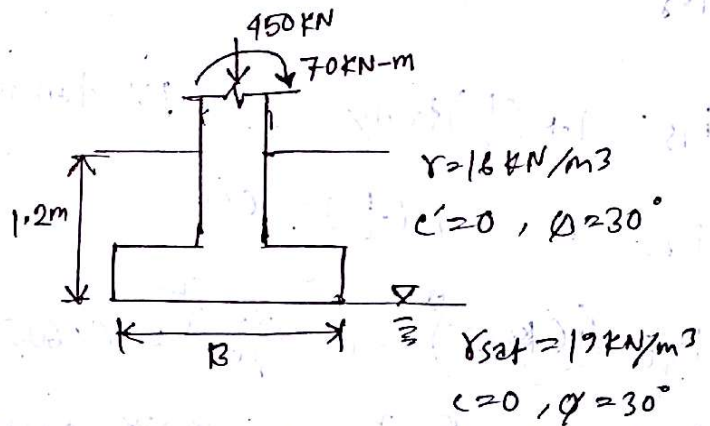 450 KN
70 KN-m
γ=18 KN/m3
1.2m
c'=0 , φ=30°
B
γsat = 19 KN/m3
c=0 , φ=30°